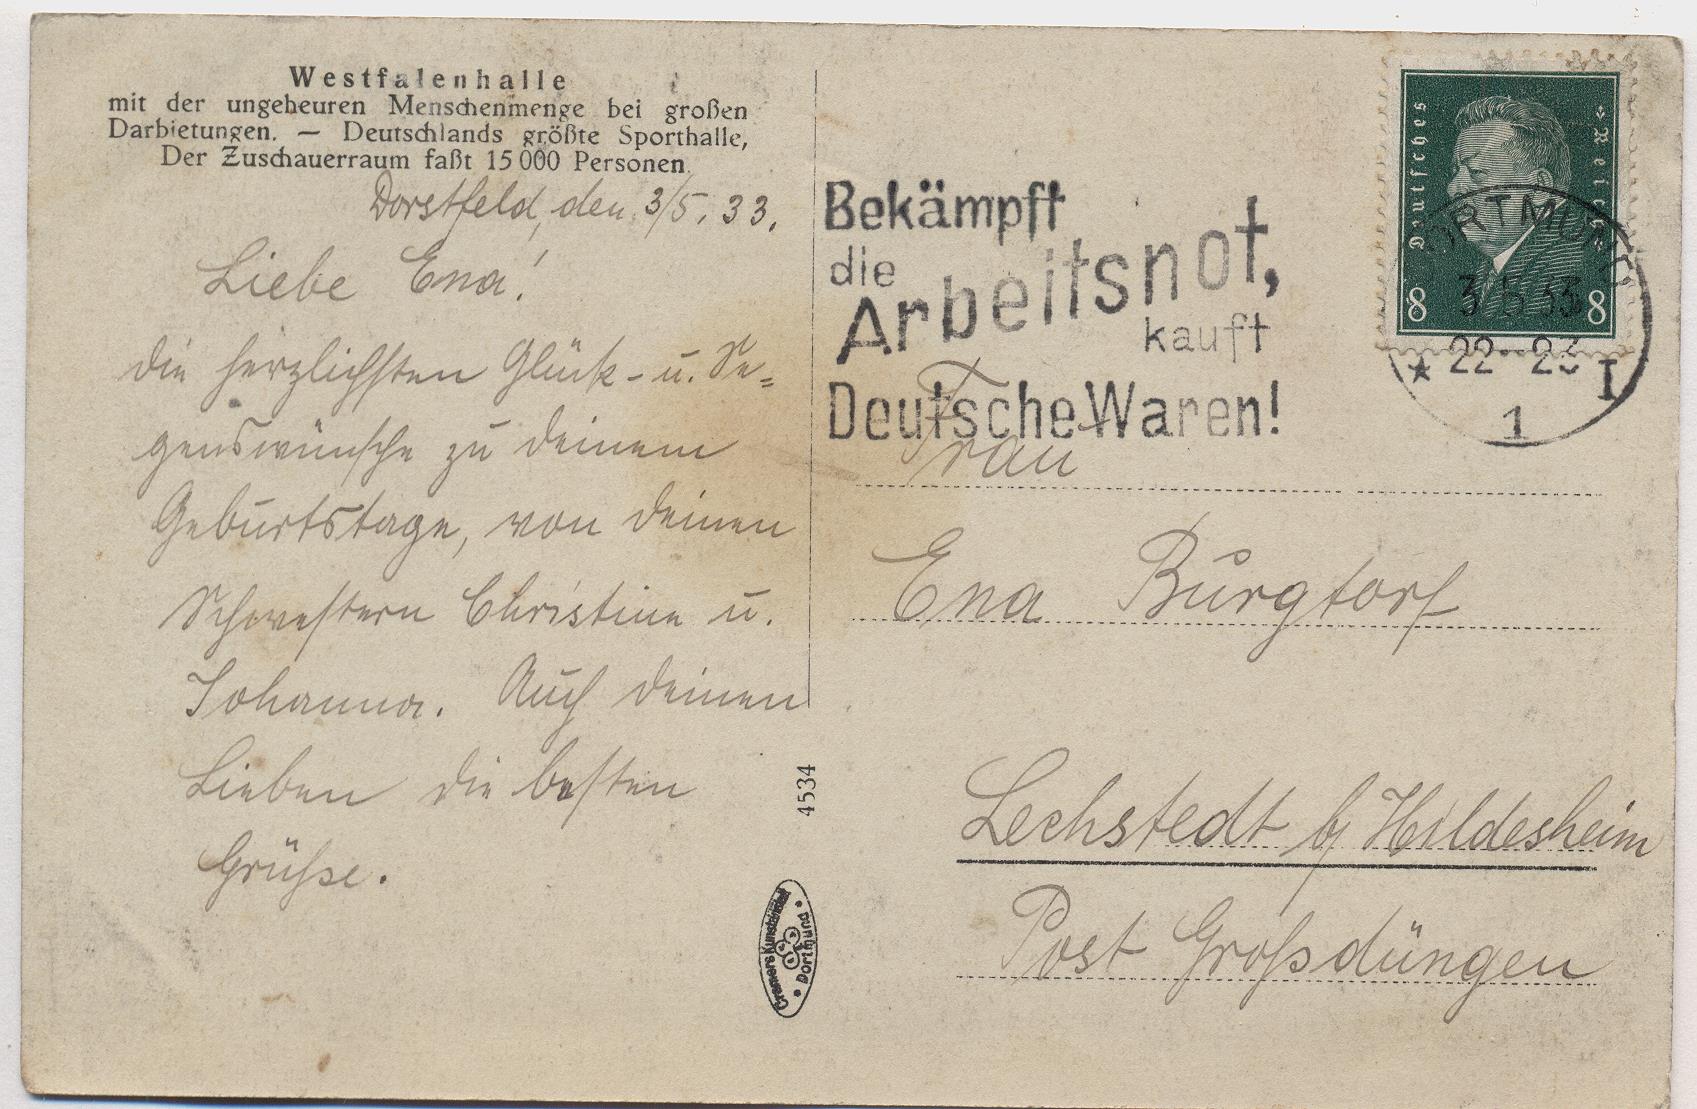 Westfalenhalle
mit der ungeheuren Menschenmenge bei großen
Darbietungen. — Deutschlands größte Sporthalle,
Der Zuschauerraum faßt 15 000 Personen.
Dorstfeld, den 3/5. 33.
Liebe Ena!
die herzlichsten Glück- u. Se=
genswünsche zu deinem
Geburtstage, von deinen
Schwestern Christine u.
Johanna. Auch deinen
Lieben die besten
Grüße.
4534
Cramers Kunstanstalt • Dortmund •
Bekämpft
die
Arbeitsnot,
kauft
Deutsche Waren!
Deutsches Reich
8 8
DORTMUND
3.5.33
22-23
* 1 I
Frau
Ena Burgtorf
Lechstedt b/ Hildesheim
Post Großdüngen